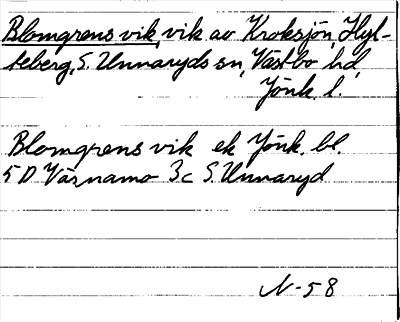 Blomgrens vik, vik av Kroksjön, Hyl-
teberg, S. Unnaryds sn, Västbo hd,
Jönk. l.
Blomgrens vik ek Jönk. bl.
5D Värnamo 3c S. Unnaryd
N-58